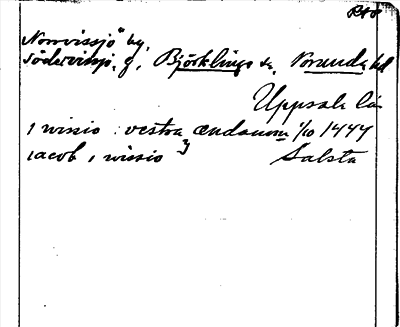 RAÖ
"Norrvissjö" by,
Södervissj. g, Björklinge sn, Norunda hd
Uppsala län
i wisio : vestra ændanom 1/10 1447
iacob i wisio Salsta